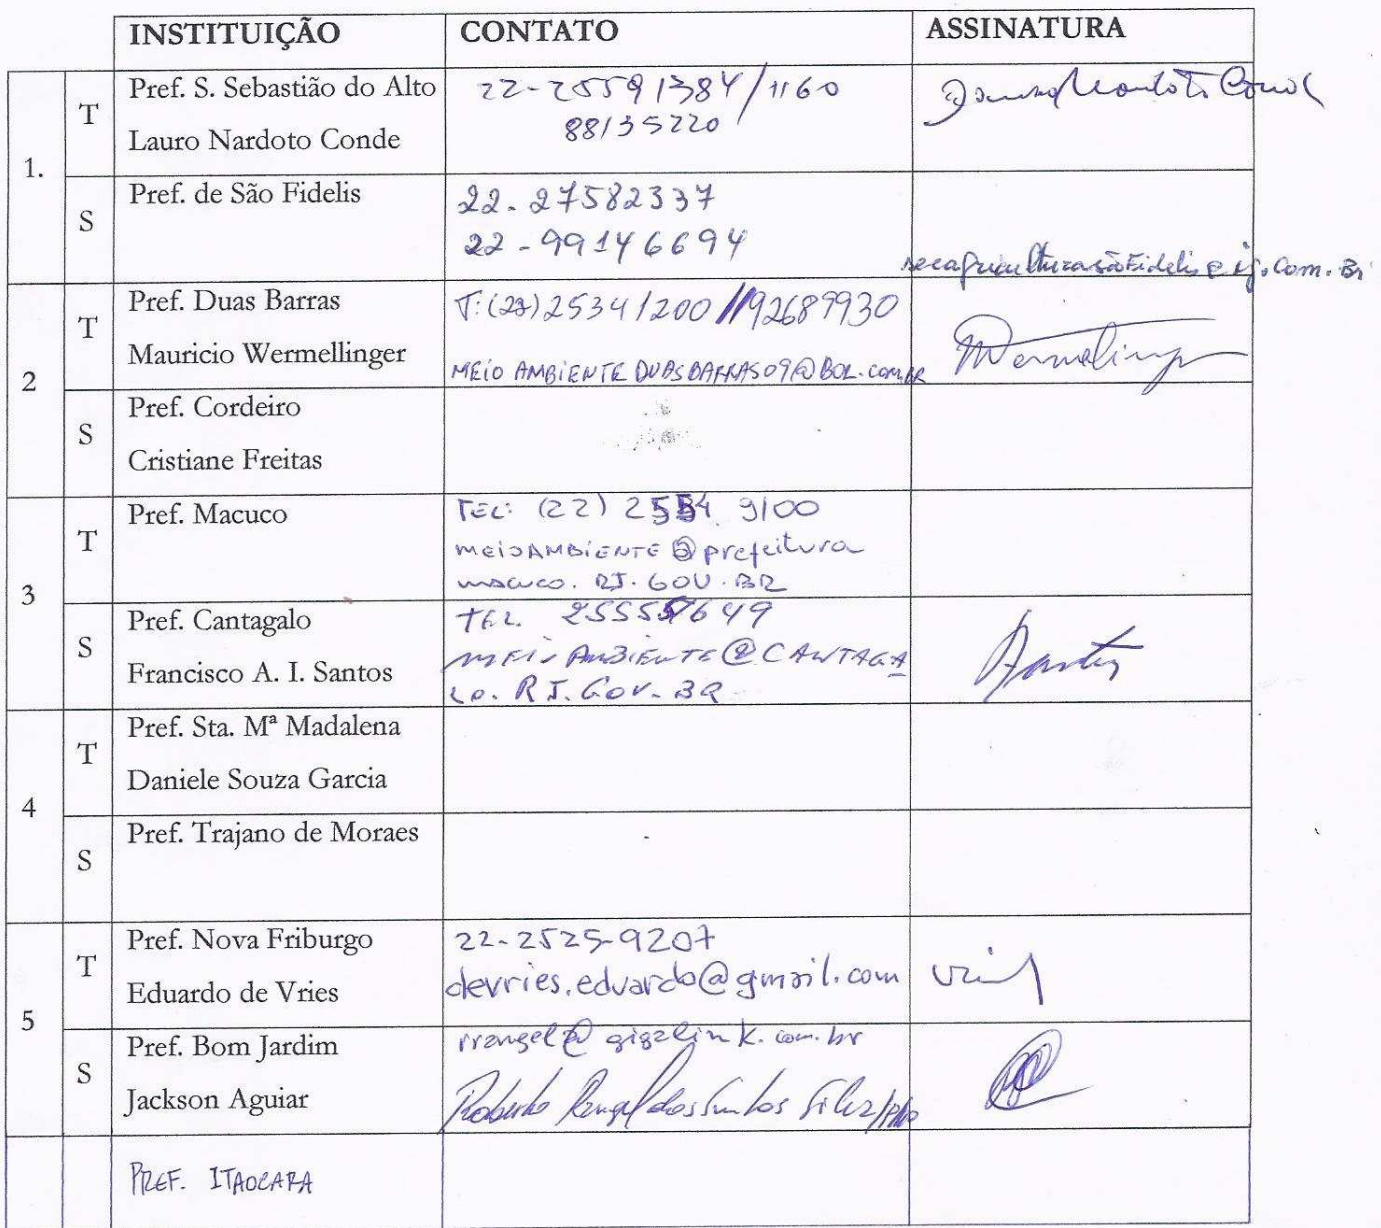 INSTITUIÇÃO CONTATO ASSINATURA
1.
T
Pref. S. Sebastião do Alto
Lauro Nardoto Conde
22-25591384/1160
88135220
S
Pref. de São Fidelis
22-27582337
22-99146694
secagriculturasãoFidelis@ig.com.Br
2
T
Pref. Duas Barras
Mauricio Wermellinger
T:(22)25341200//92689930
MEIO AMBIENTE DUASBARRAS09@BOL.com.BR
Wermelinger
S
Pref. Cordeiro
Cristiane Freitas
3
T
Pref. Macuco
TEL: (22) 2554 9100
MEIOAMBIENTE@prefeitura
macuco.RJ.GOV.BR
S
Pref. Cantagalo
Francisco A. I. Santos
TEL. 25555649
MEIO AMBIENTE@CANTAGA
LO.RJ.GOV.BR
Santos
4
T
Pref. Sta. Mª Madalena
Daniele Souza Garcia
S
Pref. Trajano de Moraes
5
T
Pref. Nova Friburgo
Eduardo de Vries
22-2525-9207
devries.eduardo@gmail.com
S
Pref. Bom Jardim
Jackson Aguiar
rrangel@gigalink.com.br
Roberto Rangel dos Santos Silva
PREF. ITAOCARA